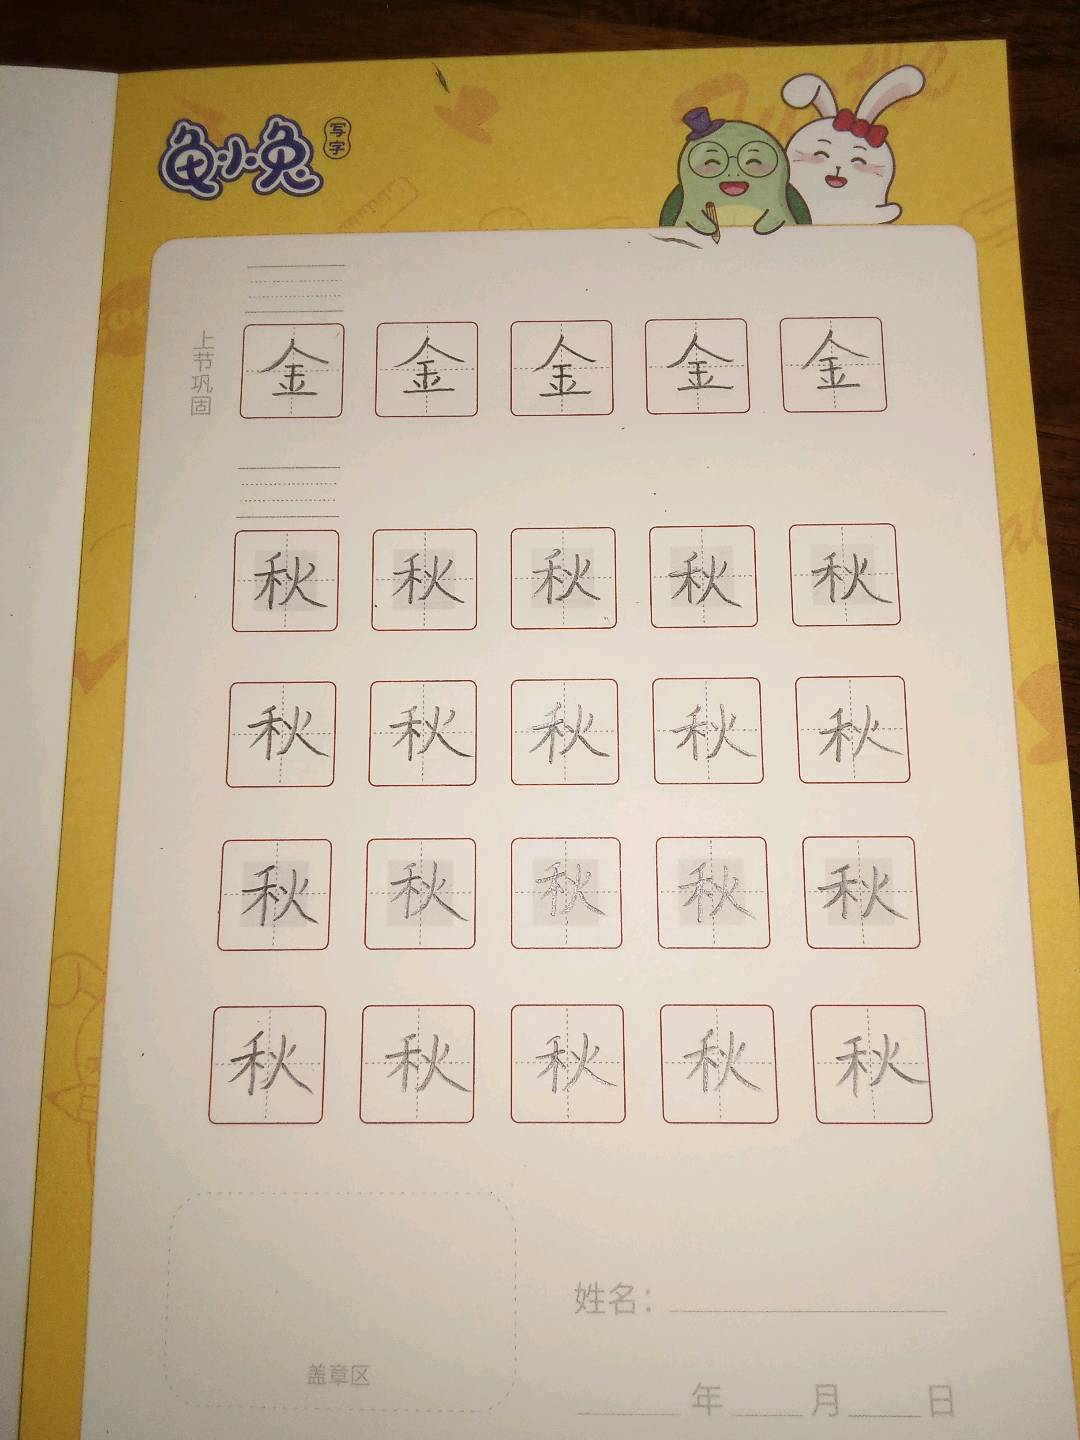 龟小兔
写字
上节巩固
金 金 金 金 金
秋 秋 秋 秋 秋
秋 秋 秋 秋 秋
秋 秋 秋 秋 秋
秋 秋 秋 秋 秋
姓名：
盖章区
年 月 日